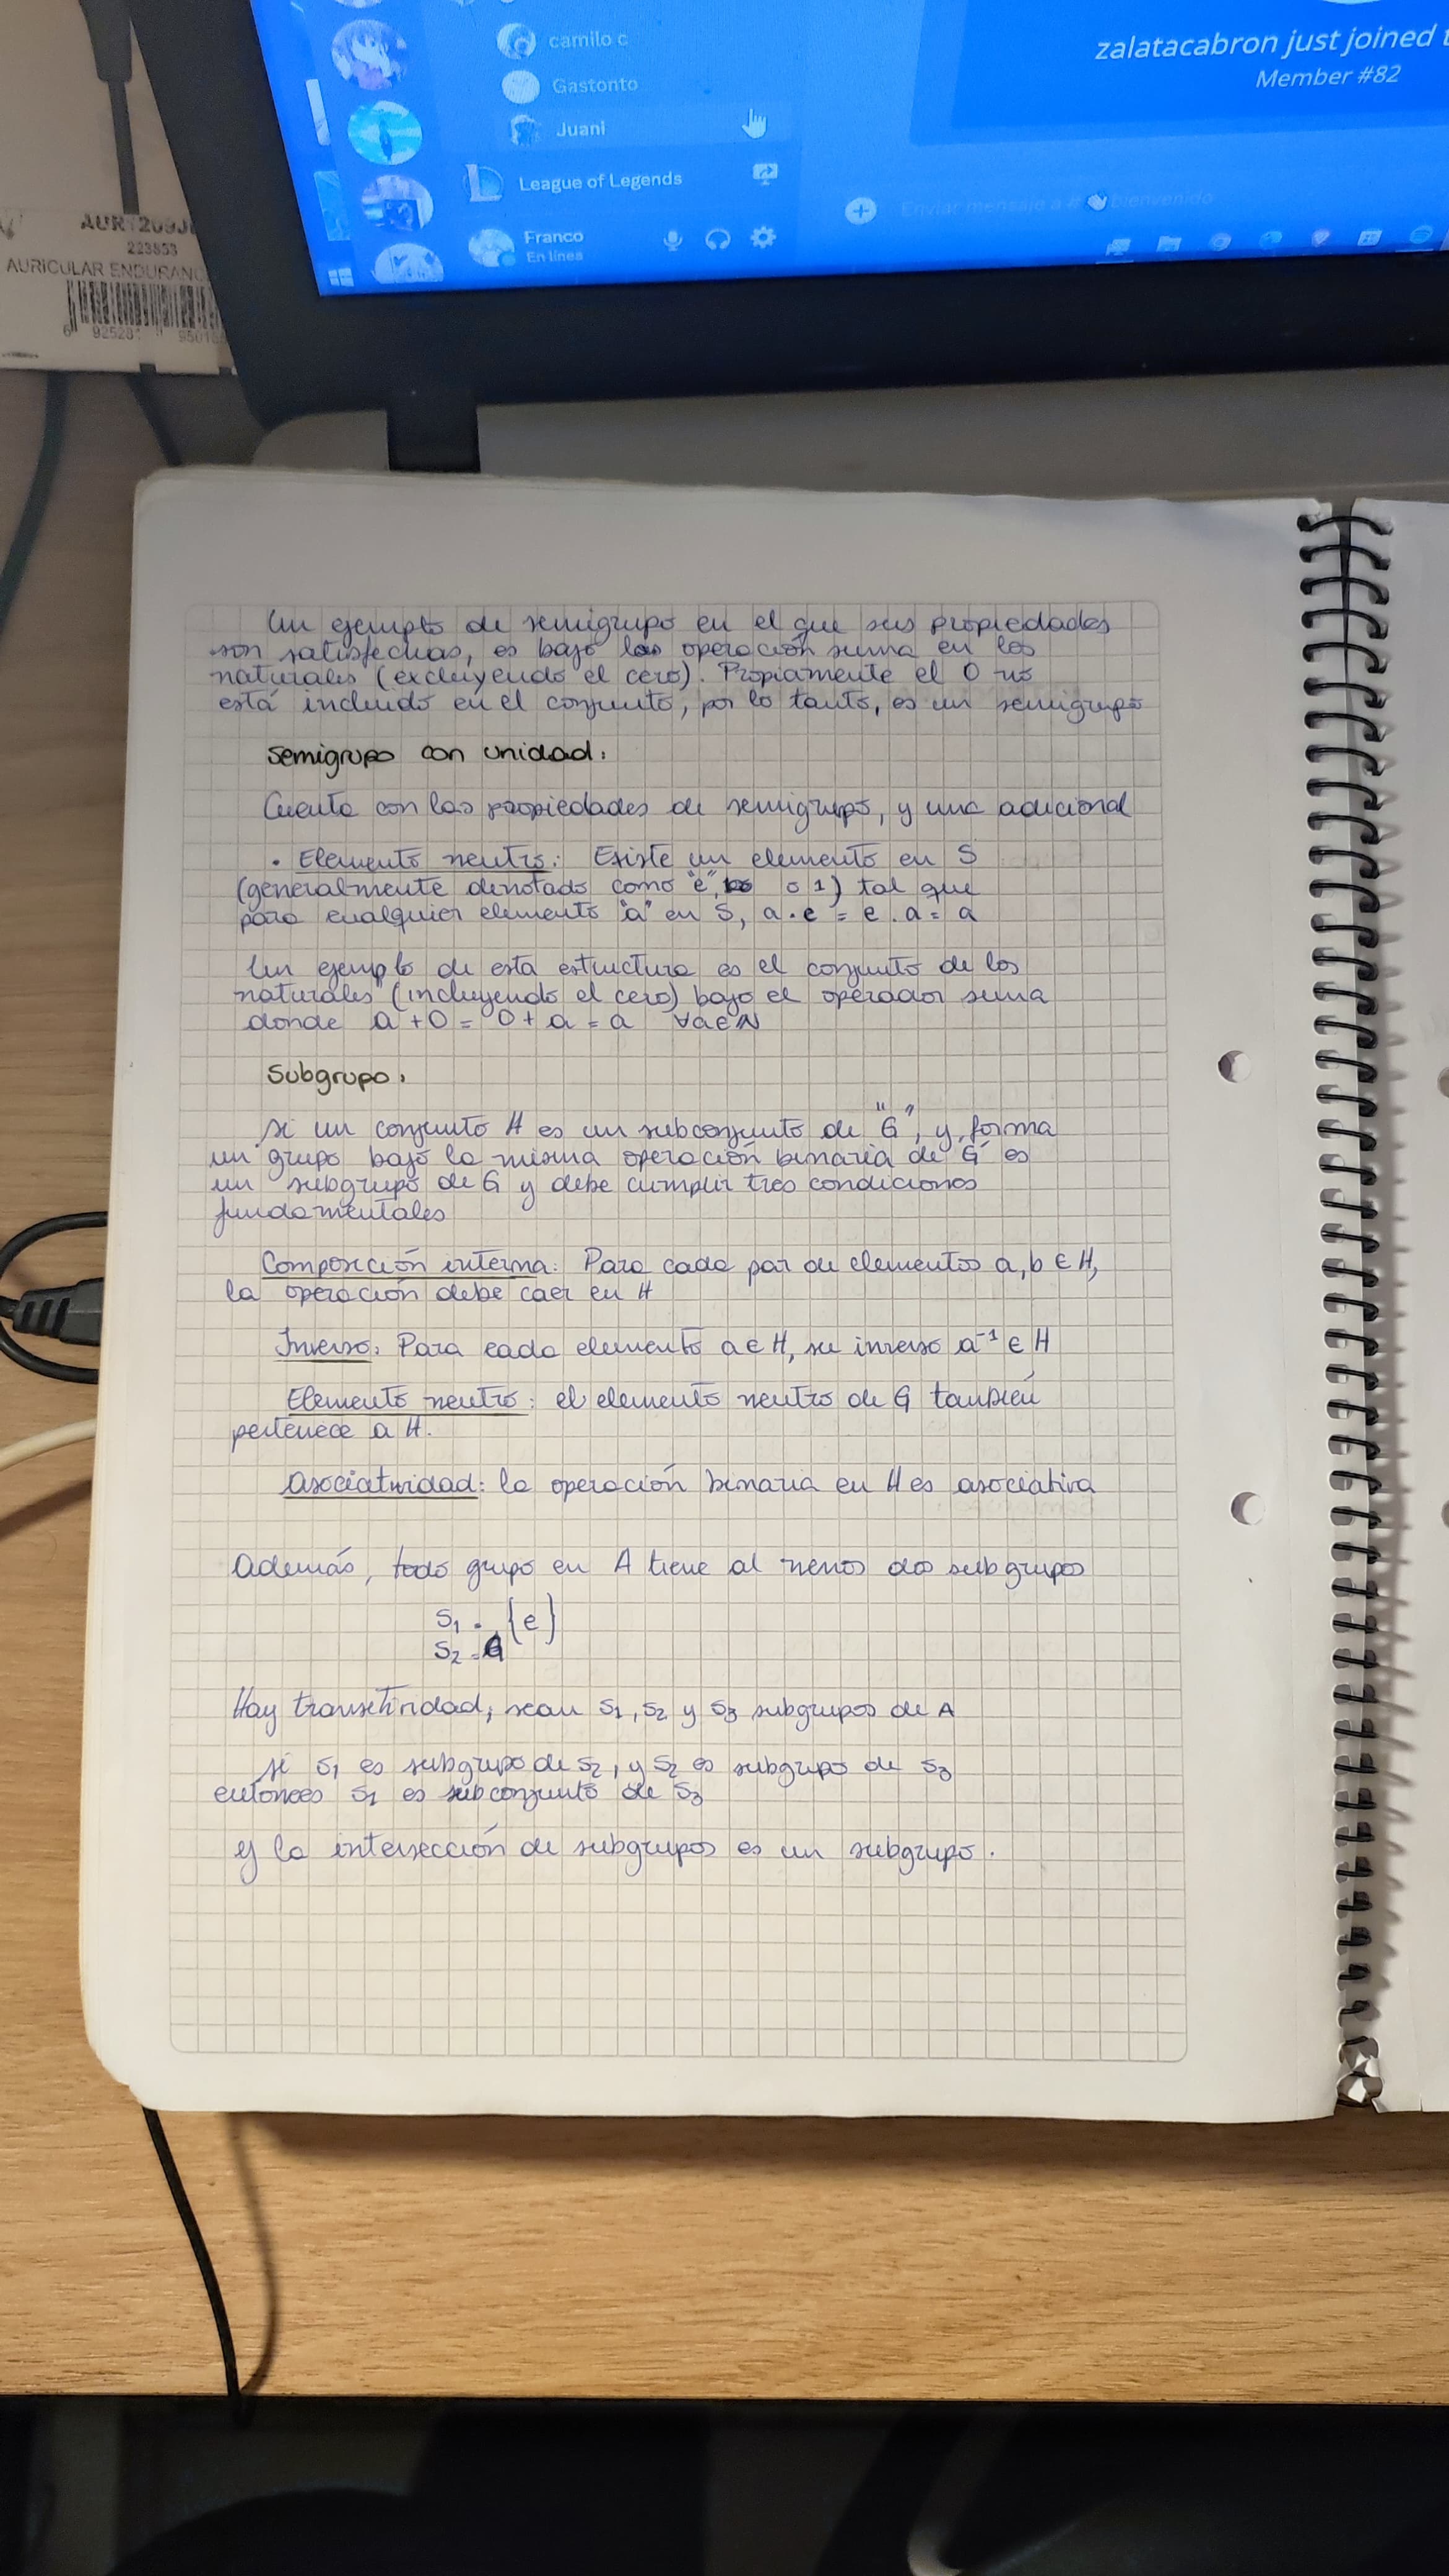 camilo c
Gastonto
Juani
League of Legends
Franco
En línea
zalatacabron just joined t
Member #82
Enviar mensaje a # bienvenido
223553
AURICULAR ENDURANC
Un ejemplo de semigrupo en el que sus propiedades
son satisfechas, es bajo las operación suma en los
naturales (excluyendo el cero). Propiamente el 0 no
está incluido en el conjunto, por lo tanto, es un semigrupo
Semigrupo con unidad:
Cuenta con las propiedades de semigrupo, y una adicional
• Elemento neutro: Existe un elemento en S
(generalmente denotado como "e", o 1) tal que
para cualquier elemento "a" en S, a . e = e . a = a
Un ejemplo de esta estructura es el conjunto de los
naturales (incluyendo el cero) bajo el operador suma
donde a + 0 = 0 + a = a ∀a∈N
Subgrupo:
Si un conjunto H es un subconjunto de "G", y forma
un grupo bajo la misma operación binaria de G es
un subgrupo de G y debe cumplir tres condiciones
fundamentales
Composición interna: Para cada par de elementos a, b ∈ H,
la operación debe caer en H
Inverso: Para cada elemento a ∈ H, su inverso a⁻¹ ∈ H
Elemento neutro: el elemento neutro de G también
pertenece a H.
Asociatividad: la operación binaria en H es asociativa
Además, todo grupo en A tiene al menos dos subgrupos
S₁ = {e}
S₂ = G
Hay transitividad, sean S₁, S₂ y S₃ subgrupos de A
Si S₁ es subgrupo de S₂, y S₂ es subgrupo de S₃
entonces S₁ es subconjunto de S₃
y la intersección de subgrupos es un subgrupo.